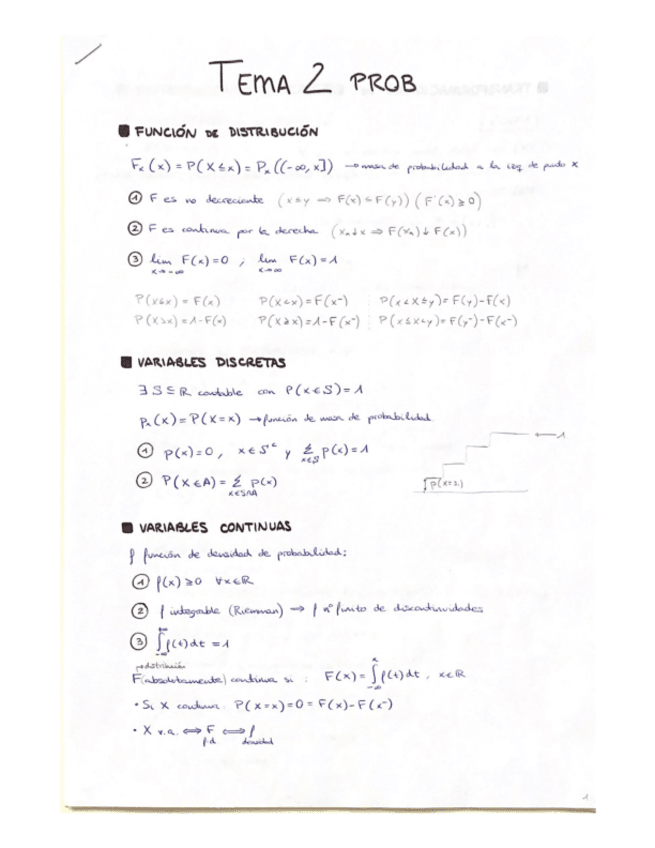 TEMA 2 PROB
■ FUNCIÓN DE DISTRIBUCIÓN
Fₓ(x) = P(X ≤ x) = Pₓ((-∞, x]) → masa de probabilidad a la izq de punto x
① F es no decreciente (x ≤ y ⇒ F(x) ≤ F(y)) (F'(x) ≥ 0)
② F es continua por la derecha (xₙ↓x ⇒ F(xₙ)↓F(x))
③ lim x→-∞ F(x) = 0 ; lim x→∞ F(x) = 1
P(X≤x) = F(x) P(X<x) = F(x⁻) P(x<X≤y) = F(y)-F(x)
P(X>x) = 1-F(x) P(X≥x) = 1-F(x⁻) P(x≤X<y) = F(y⁻)-F(x⁻)
■ VARIABLES DISCRETAS
∃ S ⊆ ℝ contable con P(X∈S) = 1
pₓ(x) = P(X=x) → función de masa de probabilidad
① p(x) = 0, x∈Sᶜ y Σ x∈S p(x) = 1
② P(X∈A) = Σ x∈S∩A p(x)
← 1
p(x=s₁)
■ VARIABLES CONTINUAS
f función de densidad de probabilidad:
① f(x) ≥ 0 ∀x∈ℝ
② f integrable (Riemman) → f nº finito de discontinuidades
③ ∫_{-∞}^{+∞} f(t)dt = 1
F(absolutamente) continua si : F(x) = ∫_{-∞}^{x} f(t)dt, x∈ℝ
• Si X continua: P(X=x) = 0 = F(x)-F(x⁻)
• X v.a. ⇔ F ⇔ f
f.d. densidad
1